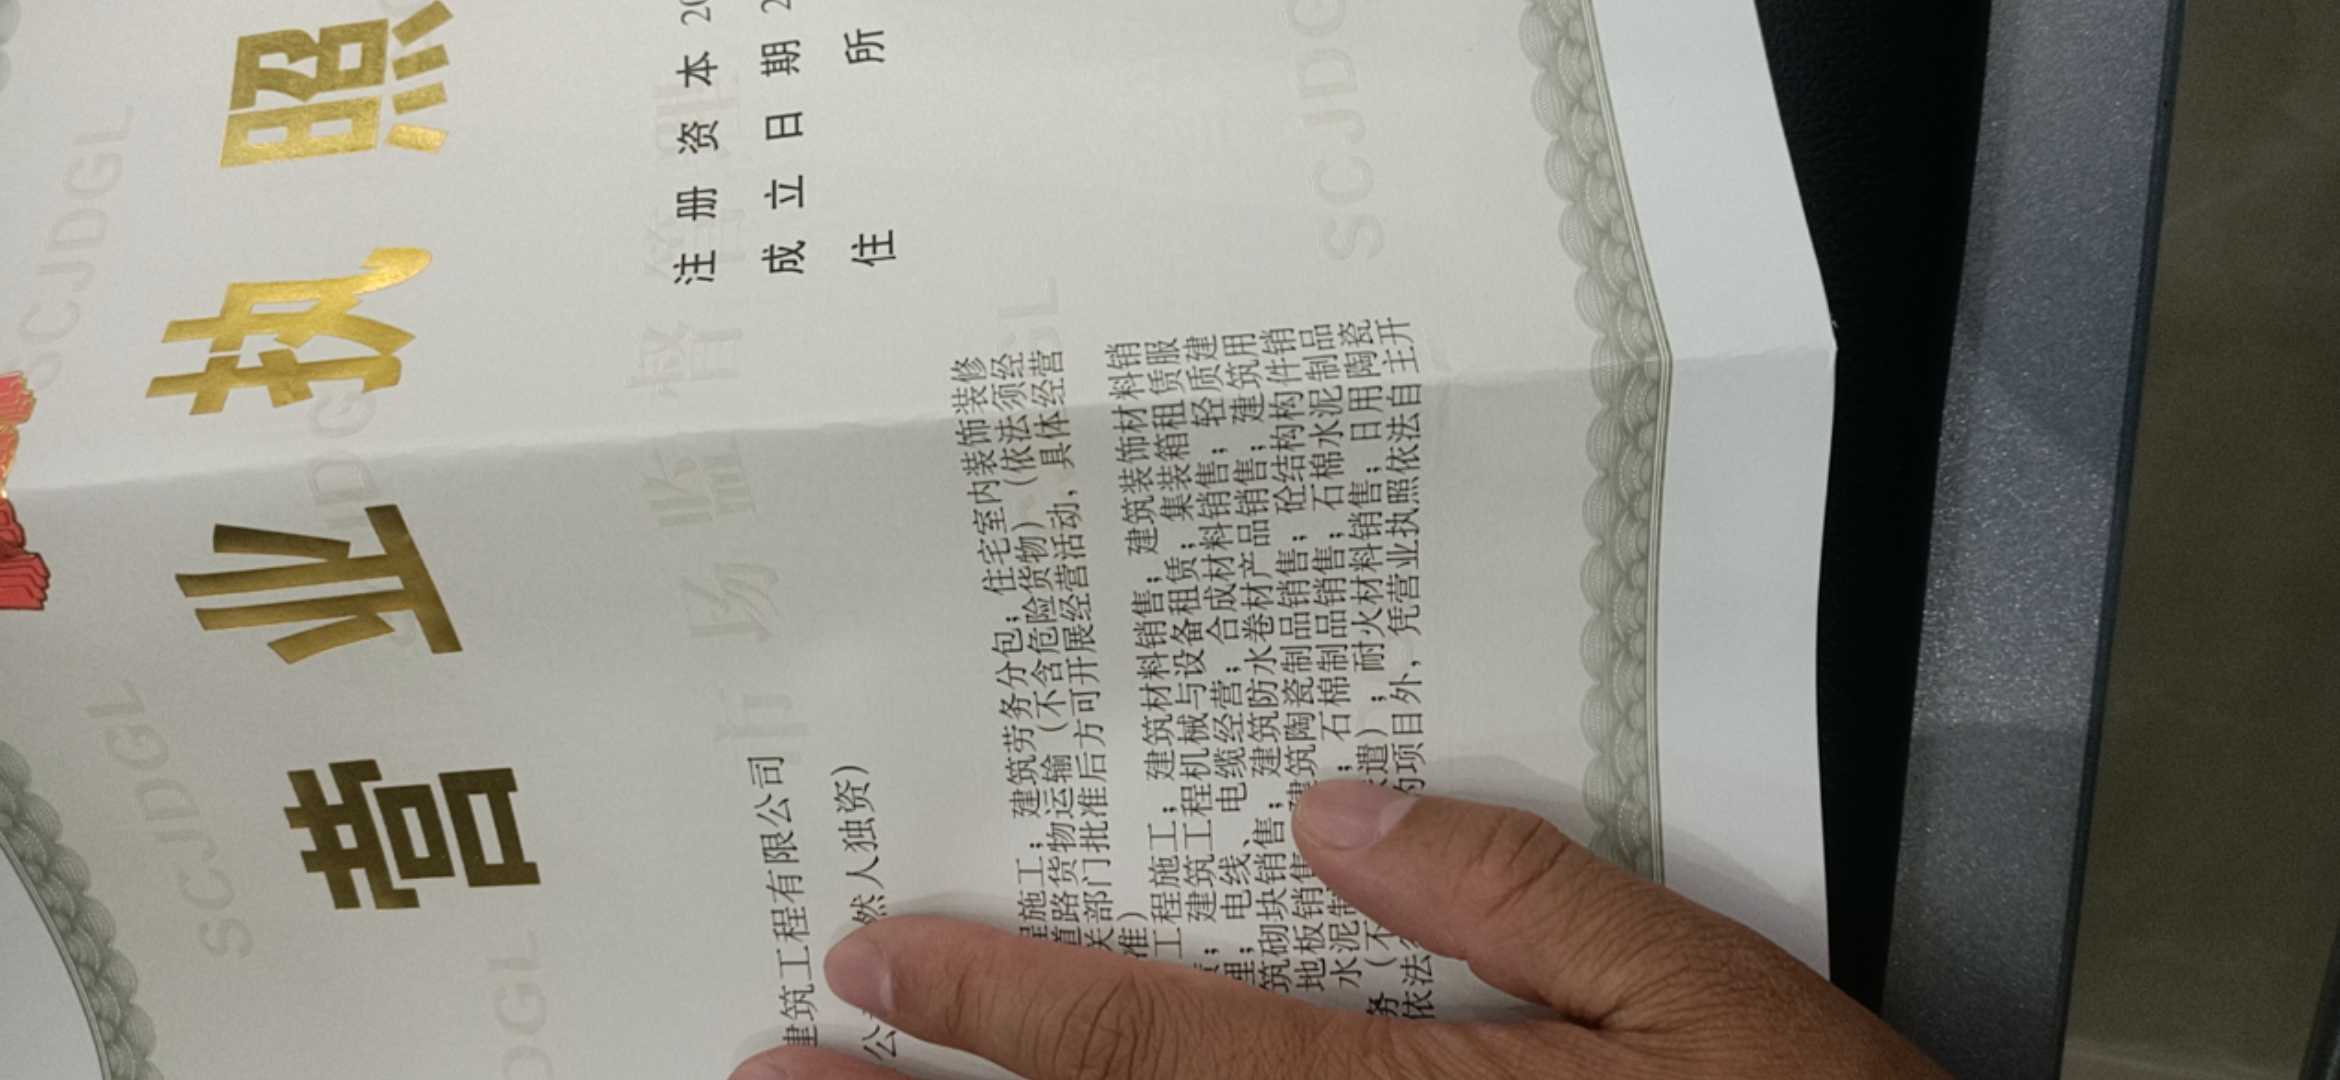 营业执照
建筑工程有限公司
然人独资）
注册资本 20
成立日期 2
住所
程施工；建筑劳务分包；住宅室内装饰装修
道路货物运输（不含危险货物）（依法须经
关部门批准后方可开展经营活动，具体经营
准）
工程施工；建筑材料销售；建筑装饰材料销
建筑工程机械与设备租赁；集装箱租赁服
理；电线、电缆经营；合成材料销售；轻质建
筑砌块销售；建筑防水卷材产品销售；建筑用
地板销售 建筑陶瓷制品销售；砼结构构件销
水泥制 ；石棉制品销售；石棉水泥制品
务（不 遣）；耐火材料销售；日用陶瓷
依法 的项目外，凭营业执照依法自主开
市场监督管理
SCJDGL
SCJDGL
SCJDGL
SCJDG